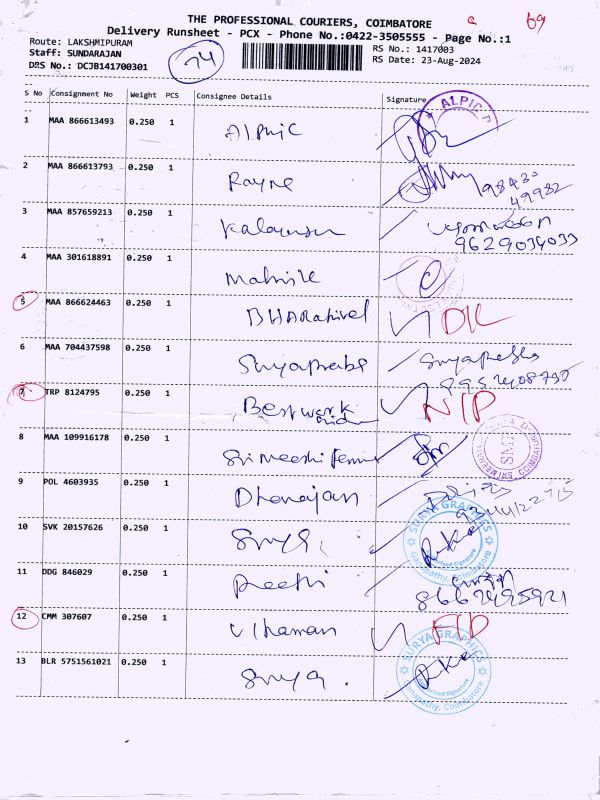 THE PROFESSIONAL COURIERS, COIMBATORE
Delivery Runsheet - PCX - Phone No.:0422-3505555 - Page No.:1
Route: LAKSHMIPURAM RS No.: 1417003
Staff: SUNDARAJAN RS Date: 23-Aug-2024
DRS No.: DCJB141700301
S No Consignment No Weight PCS Consignee Details Signature
1 MAA 866613493 0.250 1 Alpnic
ALPIC
2 MAA 866613793 0.250 1 Rayne
98430
49982
3 MAA 857659213 0.250 1
9629034033
4 MAA 301618891 0.250 1
5 MAA 866624463 0.250 1 BHARathivel DIL
6 MAA 704437598 0.250 1 Suryaprabe Suryaprabha
8952408790
7 TRP 8124795 0.250 1 Bestwork NIP
8 MAA 109916178 0.250 1
COIMBATORE
9 POL 4603935 0.250 1 Dhanajan
10 SVK 20157626 0.250 1 Surya
SURYA GRAPHICS
Authorised Signature
Ganapathy, Coimbatore
11 DDG 846029 0.250 1 Preethi
8667495921
12 CMM 307607 0.250 1
13 BLR 5751561021 0.250 1 Surya
SURYA GRAPHICS
Authorised Signature
Ganapathy, Coimbatore